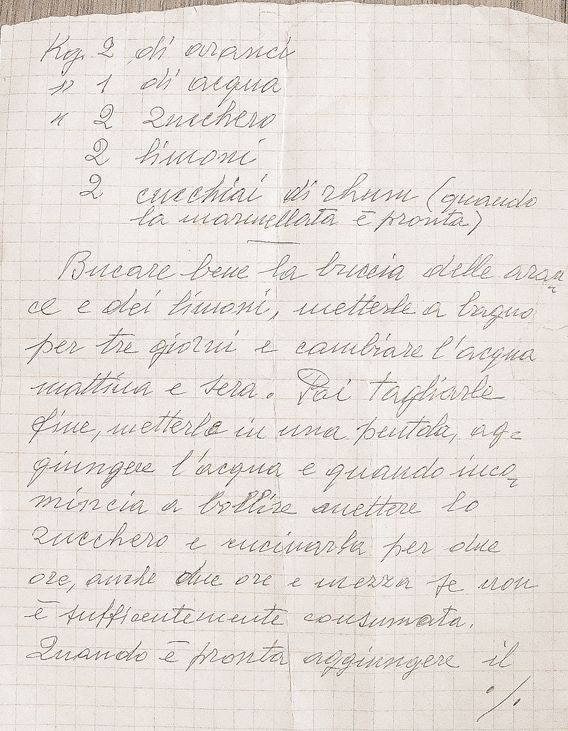 Kg. 2 di aranci
" 1 di acqua
" 2 zucchero
2 limoni
2 cucchiai di rhum (quando
la marmellata è pronta)
Bucare bene la buccia delle aran-
ce e dei limoni, metterle a bagno
per tre giorni e cambiare l'acqua
mattina e sera. Poi tagliarle
fine, metterle in una pentola, ag=
giungere l'acqua e quando inco-
mincia a bollire mettere lo
zucchero e cucinarla per due
ore, anche due ore e mezza se non
è sufficentemente consumata.
Quando è pronta aggiungere il
·/.